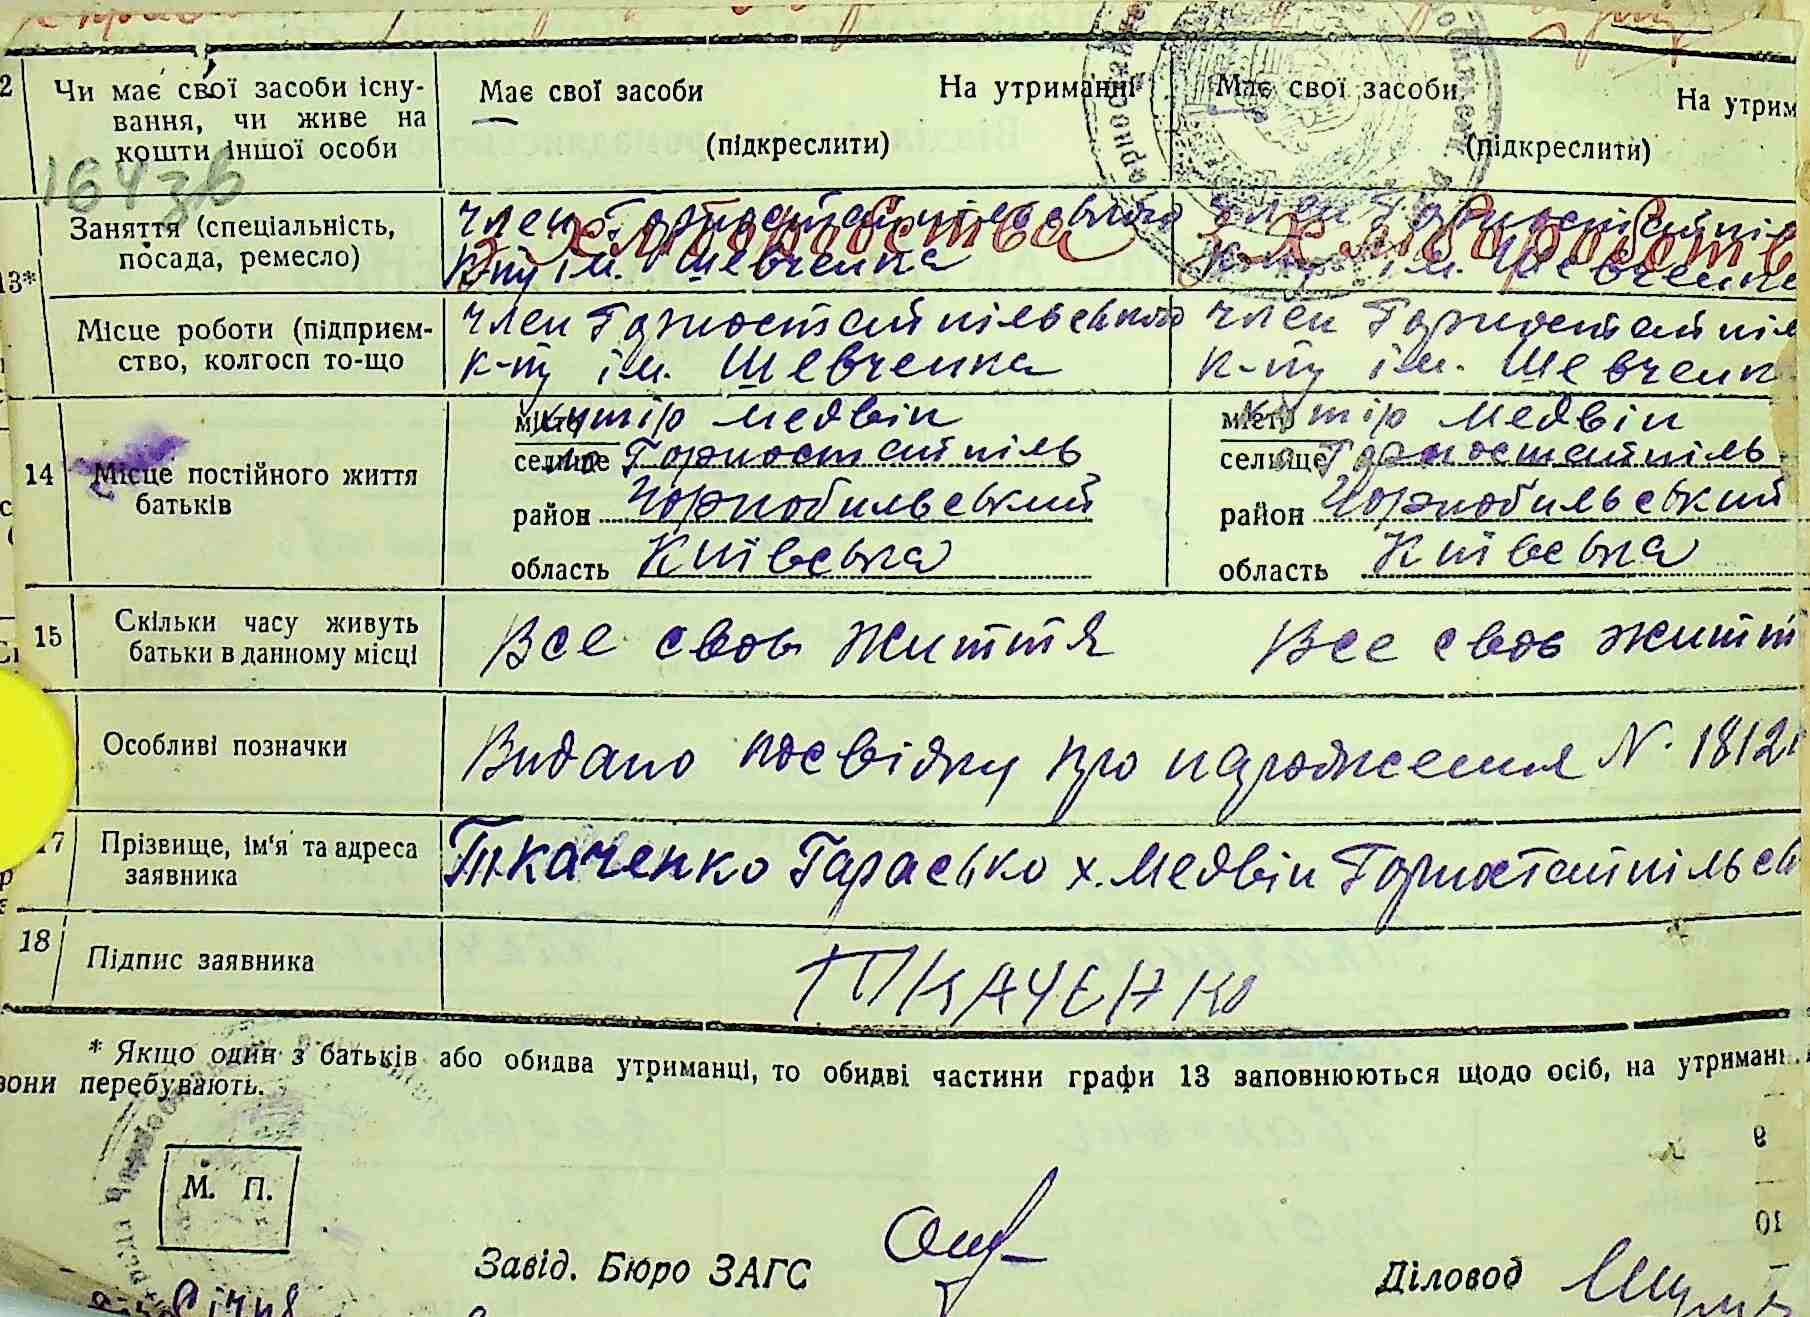 12 Чи має свої засоби існу- Має свої засоби На утриманні Має свої засоби На утрим
вання, чи живе на
кошти іншої особи (підкреслити) (підкреслити)
Заняття (спеціальність, член Горностайпільського член Горностайпіл
посада, ремесло) к-пу ім. Шевченка к-пу ім. Шевченка
хлібороботва хліборобств
13*
Місце роботи (підприєм- член Горностайпільського член Горностайпіл
ство, колгосп то-що к-пу ім. Шевченка к-пу ім. Шевченк
місто хутір Медвін місто хутір Медвін
14 Місце постійного життя селище Горностайпіль селище Горностайпіль
батьків район Чорнобильський район Чорнобильський
область Київська область Київська
15 Скільки часу живуть Все своє життя Все своє житт
батьки в данному місці
Особливі позначки Видано посвідку про народження N. 1812
17 Прізвище, ім'я та адреса Ткаченко Гарасько х. Медвін Горностайпільсь
заявника
18 Підпис заявника ТКАЧЕНКО
* Якщо один з батьків або обидва утриманці, то обидві частини графи 13 заповнюються щодо осіб, на утриманн
вони перебувають.
М. П.
Завід. Бюро ЗАГС Діловод
січня